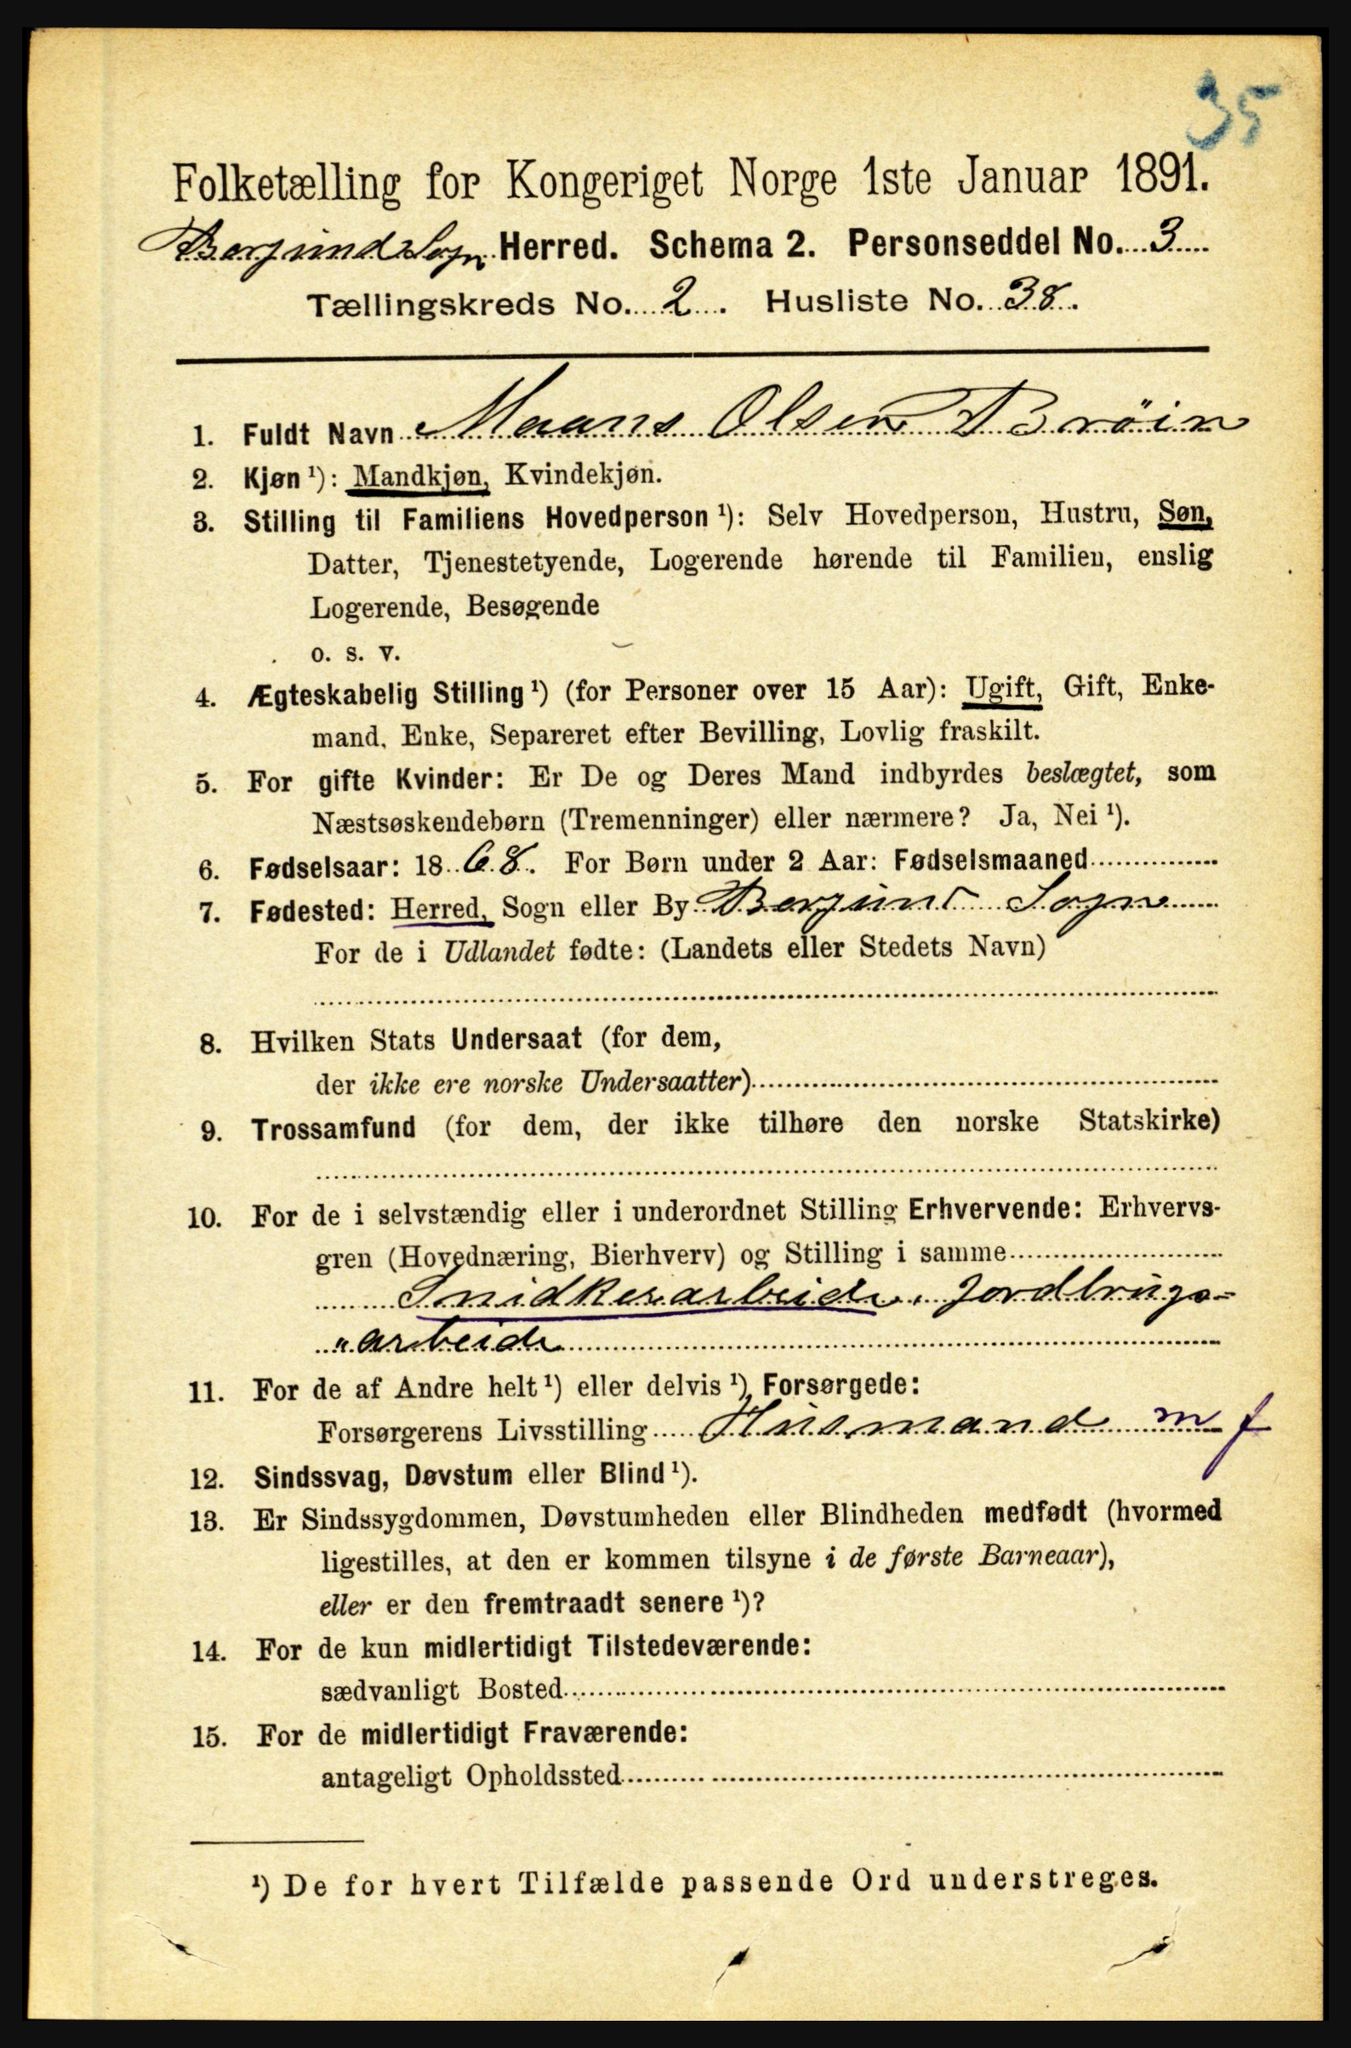 35
Folketælling for Kongeriget Norge 1ste Januar 1891.
Borgund Sogn Herred. Schema 2. Personseddel No. 3
Tællingskreds No. 2. Husliste No. 38.
1. Fuldt Navn Maans Olsen Brøin
2. Kjøn ¹): Mandkjøn, Kvindekjøn.
3. Stilling til Familiens Hovedperson ¹): Selv Hovedperson, Hustru, Søn,
Datter, Tjenestetyende, Logerende hørende til Familien, enslig
Logerende, Besøgende
o. s. v.
4. Ægteskabelig Stilling ¹) (for Personer over 15 Aar): Ugift, Gift, Enke-
mand, Enke, Separeret efter Bevilling, Lovlig fraskilt.
5. For gifte Kvinder: Er De og Deres Mand indbyrdes beslægtet, som
Næstsøskendebørn (Tremenninger) eller nærmere? Ja, Nei ¹).
6. Fødselsaar: 1868. For Børn under 2 Aar: Fødselsmaaned
7. Fødested: Herred, Sogn eller By Borgund Sogn
For de i Udlandet fødte: (Landets eller Stedets Navn)
8. Hvilken Stats Undersaat (for dem,
der ikke ere norske Undersaatter)
9. Trossamfund (for dem, der ikke tilhøre den norske Statskirke)
10. For de i selvstændig eller i underordnet Stilling Erhvervende: Erhvervs-
gren (Hovednæring, Bierhverv) og Stilling i samme
Snidkerarbeide, Jordbrugs=
"arbeide
11. For de af Andre helt ¹) eller delvis ¹) Forsørgede:
Forsørgerens Livsstilling Husmand m f
12. Sindssvag, Døvstum eller Blind ¹).
13. Er Sindssygdommen, Døvstumheden eller Blindheden medfødt (hvormed
ligestilles, at den er kommen tilsyne i de første Barneaar),
eller er den fremtraadt senere ¹)?
14. For de kun midlertidigt Tilstedeværende:
sædvanligt Bosted
15. For de midlertidigt Fraværende:
antageligt Opholdssted
¹) De for hvert Tilfælde passende Ord understreges.